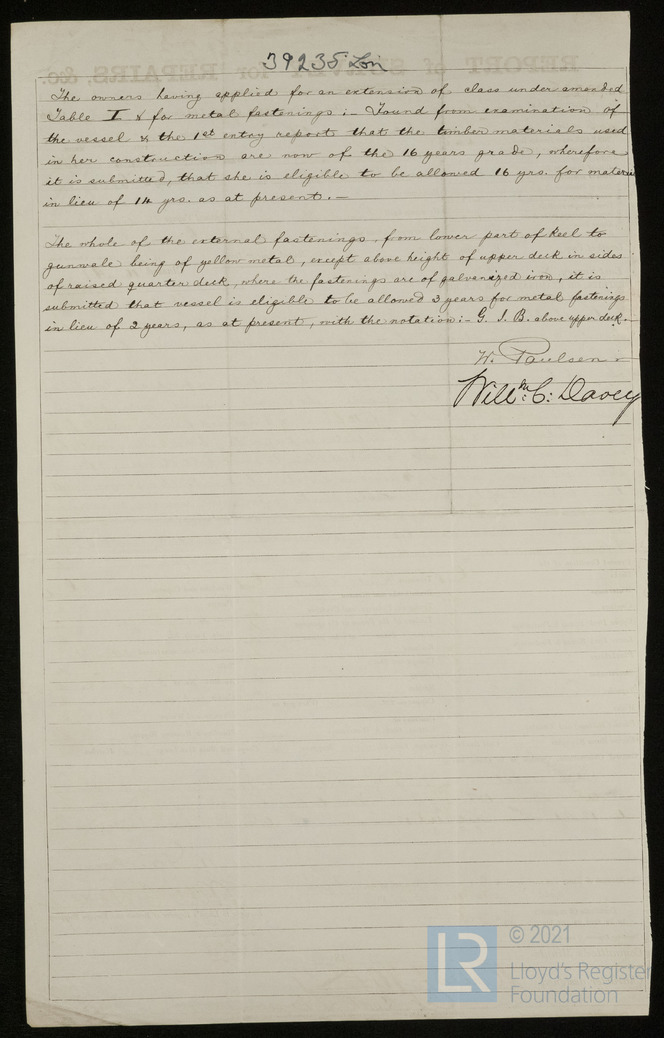 39235 Lon
The owners having applied for an extension of class under amended
Table I & for metal fastenings; – Found from examination of
the vessel & the 1st entry report that the timber materials used
in her construction are now of the 16 years grade, wherefore
it is submitted, that she is eligible to be allowed 16 yrs. for materi
in lieu of 14 yrs. as at present. –
The whole of the external fastenings, from lower part of keel to
gunwale being of yellow metal, except above height of upper deck in sides
of raised quarter deck, where the fastenings are of galvanized iron, it is
submitted that vessel is eligible to be allowed 3 years for metal fastenings
in lieu of 2 years, as at present, with the notation: – G. I. B. above upper deck. –
W. Paulsen. –
Willm: C: Davey
LR
© 2021
Lloyd's Register
Foundation